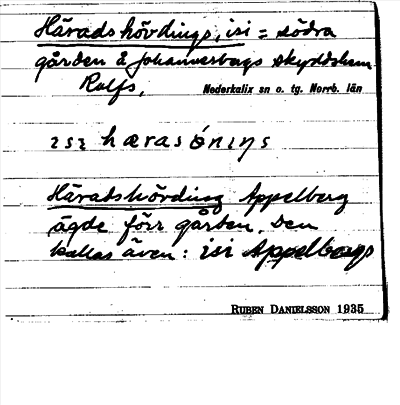 Häradshövdings, isi = södra
gården å Johannesbergs skyddshem
Rolfs,
Nederkalix sn o. tg. Norrb. län
ısı hærasónıŋs
Häradshövding Appelberg
ägde förr gården. Den
kallas även: isi Appelbergs
RUBEN DANIELSSON 1935